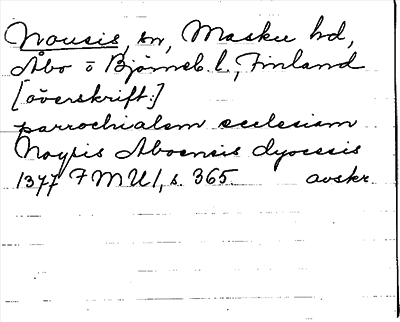 Nousis, sn, Masku hd,
Åbo o Björneb. l., Finland
[överskrift:]
parrochialem ecclesiam
Noyis Aboensis dyocesis
1377 FMU 1, s. 365. avskr.